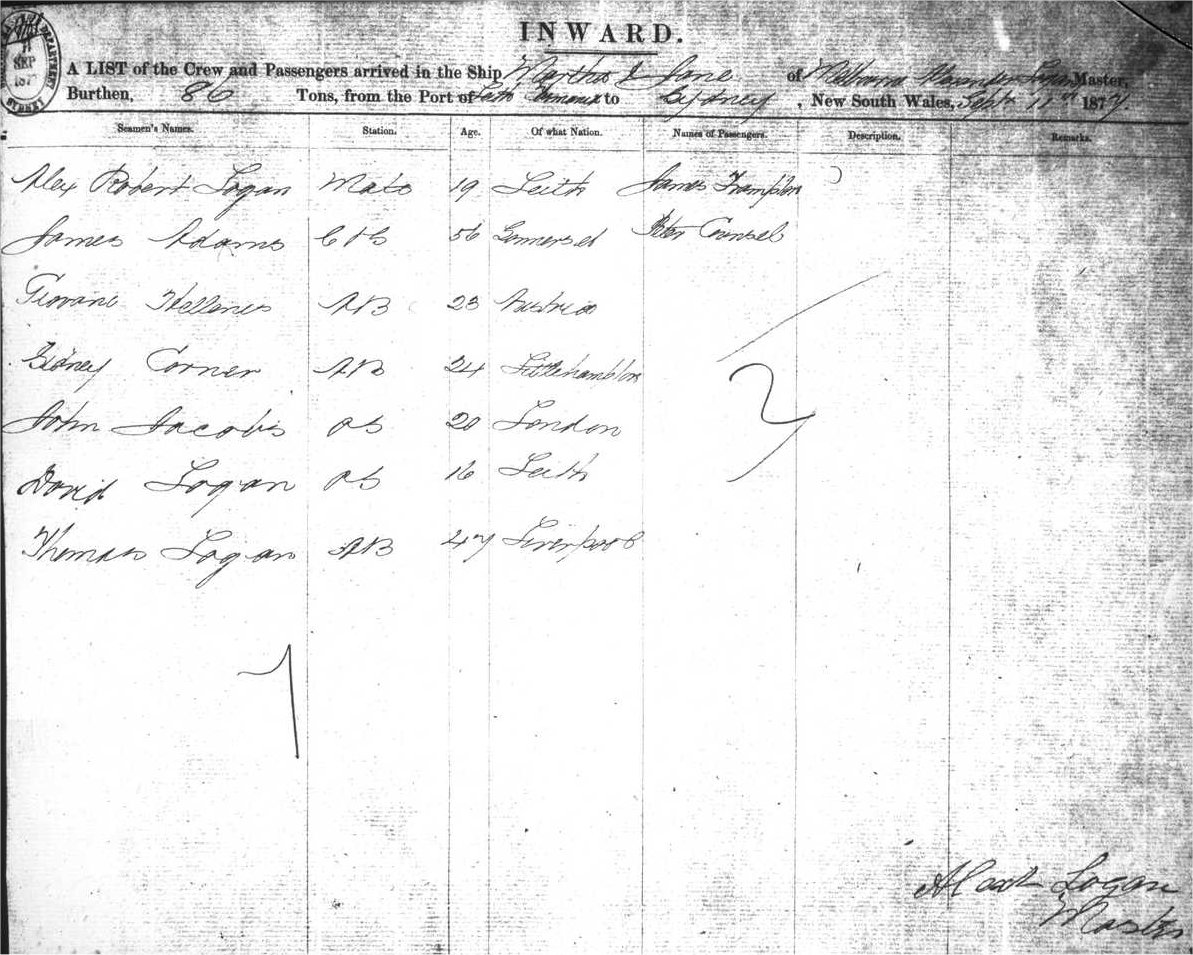 INWARD.
A LIST of the Crew and Passengers arrived in the Ship Martha & Jane of Melbourne Alexander Logan Master,
Burthen, 86 Tons, from the Port of to Sydney, New South Wales, Sept 11th 1877
Seamen's Names. Station. Age. Of what Nation. Names of Passengers. Description. Remarks.
Alex Robert Logan Mate 19 Leith James Frampton
James Adams C & S 56 Somerset Peter Counsel
Giovane AB 23 Austria
Sidney Corner AB 24 Littlehampton
John Jacobs OS 20 London
David Logan OS 16 Leith
Thomas Logan AB 47 Liverpool
2
7
Logan
Master
SEP
187
SYDNEY